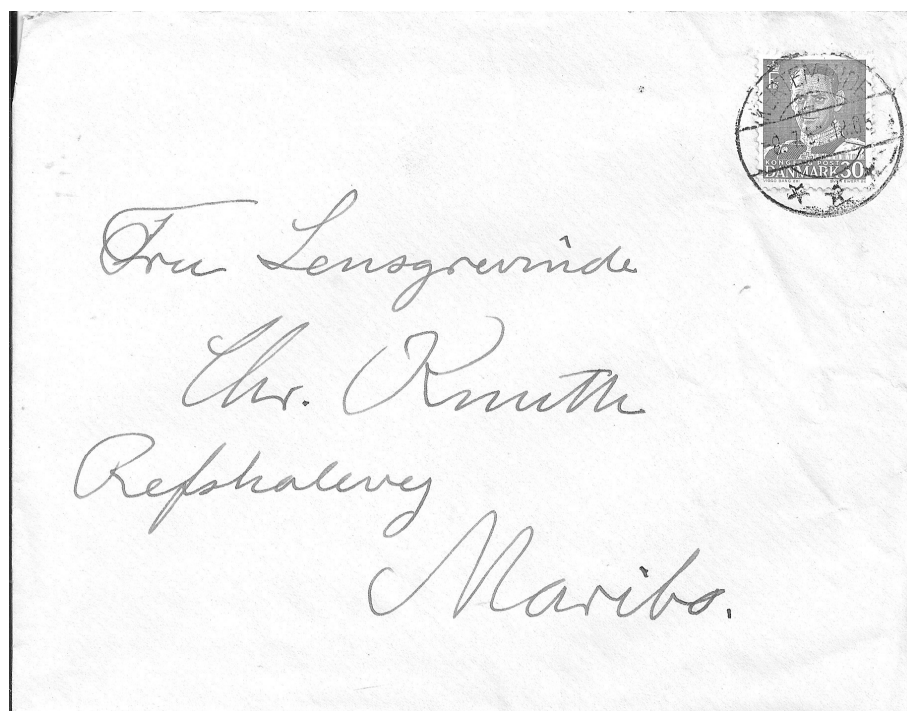 KONGELIG POST
DANMARK 30
Fru Lensgrevinde
Chr. Knuth
Refshalevej
Maribo.